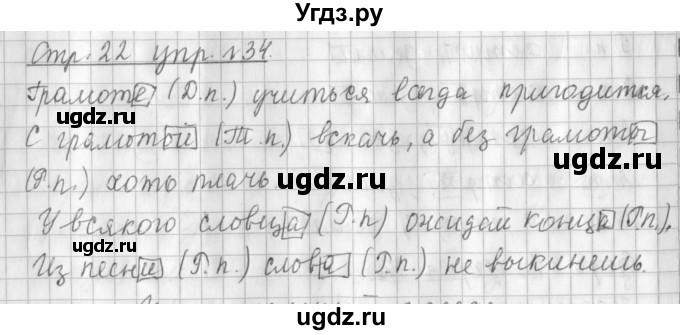 Угдз.ру
Стр. 22 упр. №34.
Грамоте (Д.п.) учиться всегда пригодится.
С грамотой (Т.п.) вскачь, а без грамоты
(Р.п.) хоть плачь
У всякого словца (Р.п.) ожидай конца (Р.п.).
Из песни (Р.п.) слова (Р.п.) не выкинешь.
ugdz.ru
ugdz.ru
ugdz.ru
ugdz.ru
ugdz.ru
ugdz.ru
ugdz.ru
ugdz.ru